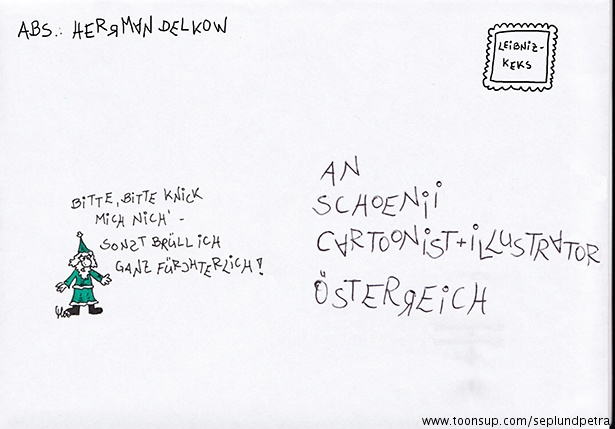 ABS.: HERRMAN DELKOW
LEIBNIZ-
KEKS
AN
SCHOENII
CARTOONIST+ILLUSTRATOR
ÖSTERREICH
BITTE, BITTE KNICK
MICH NICH' -
SONZT BRÜLL ICH
GANZ FÜRCHTERLICH!
www.toonsup.com/seplundpetra